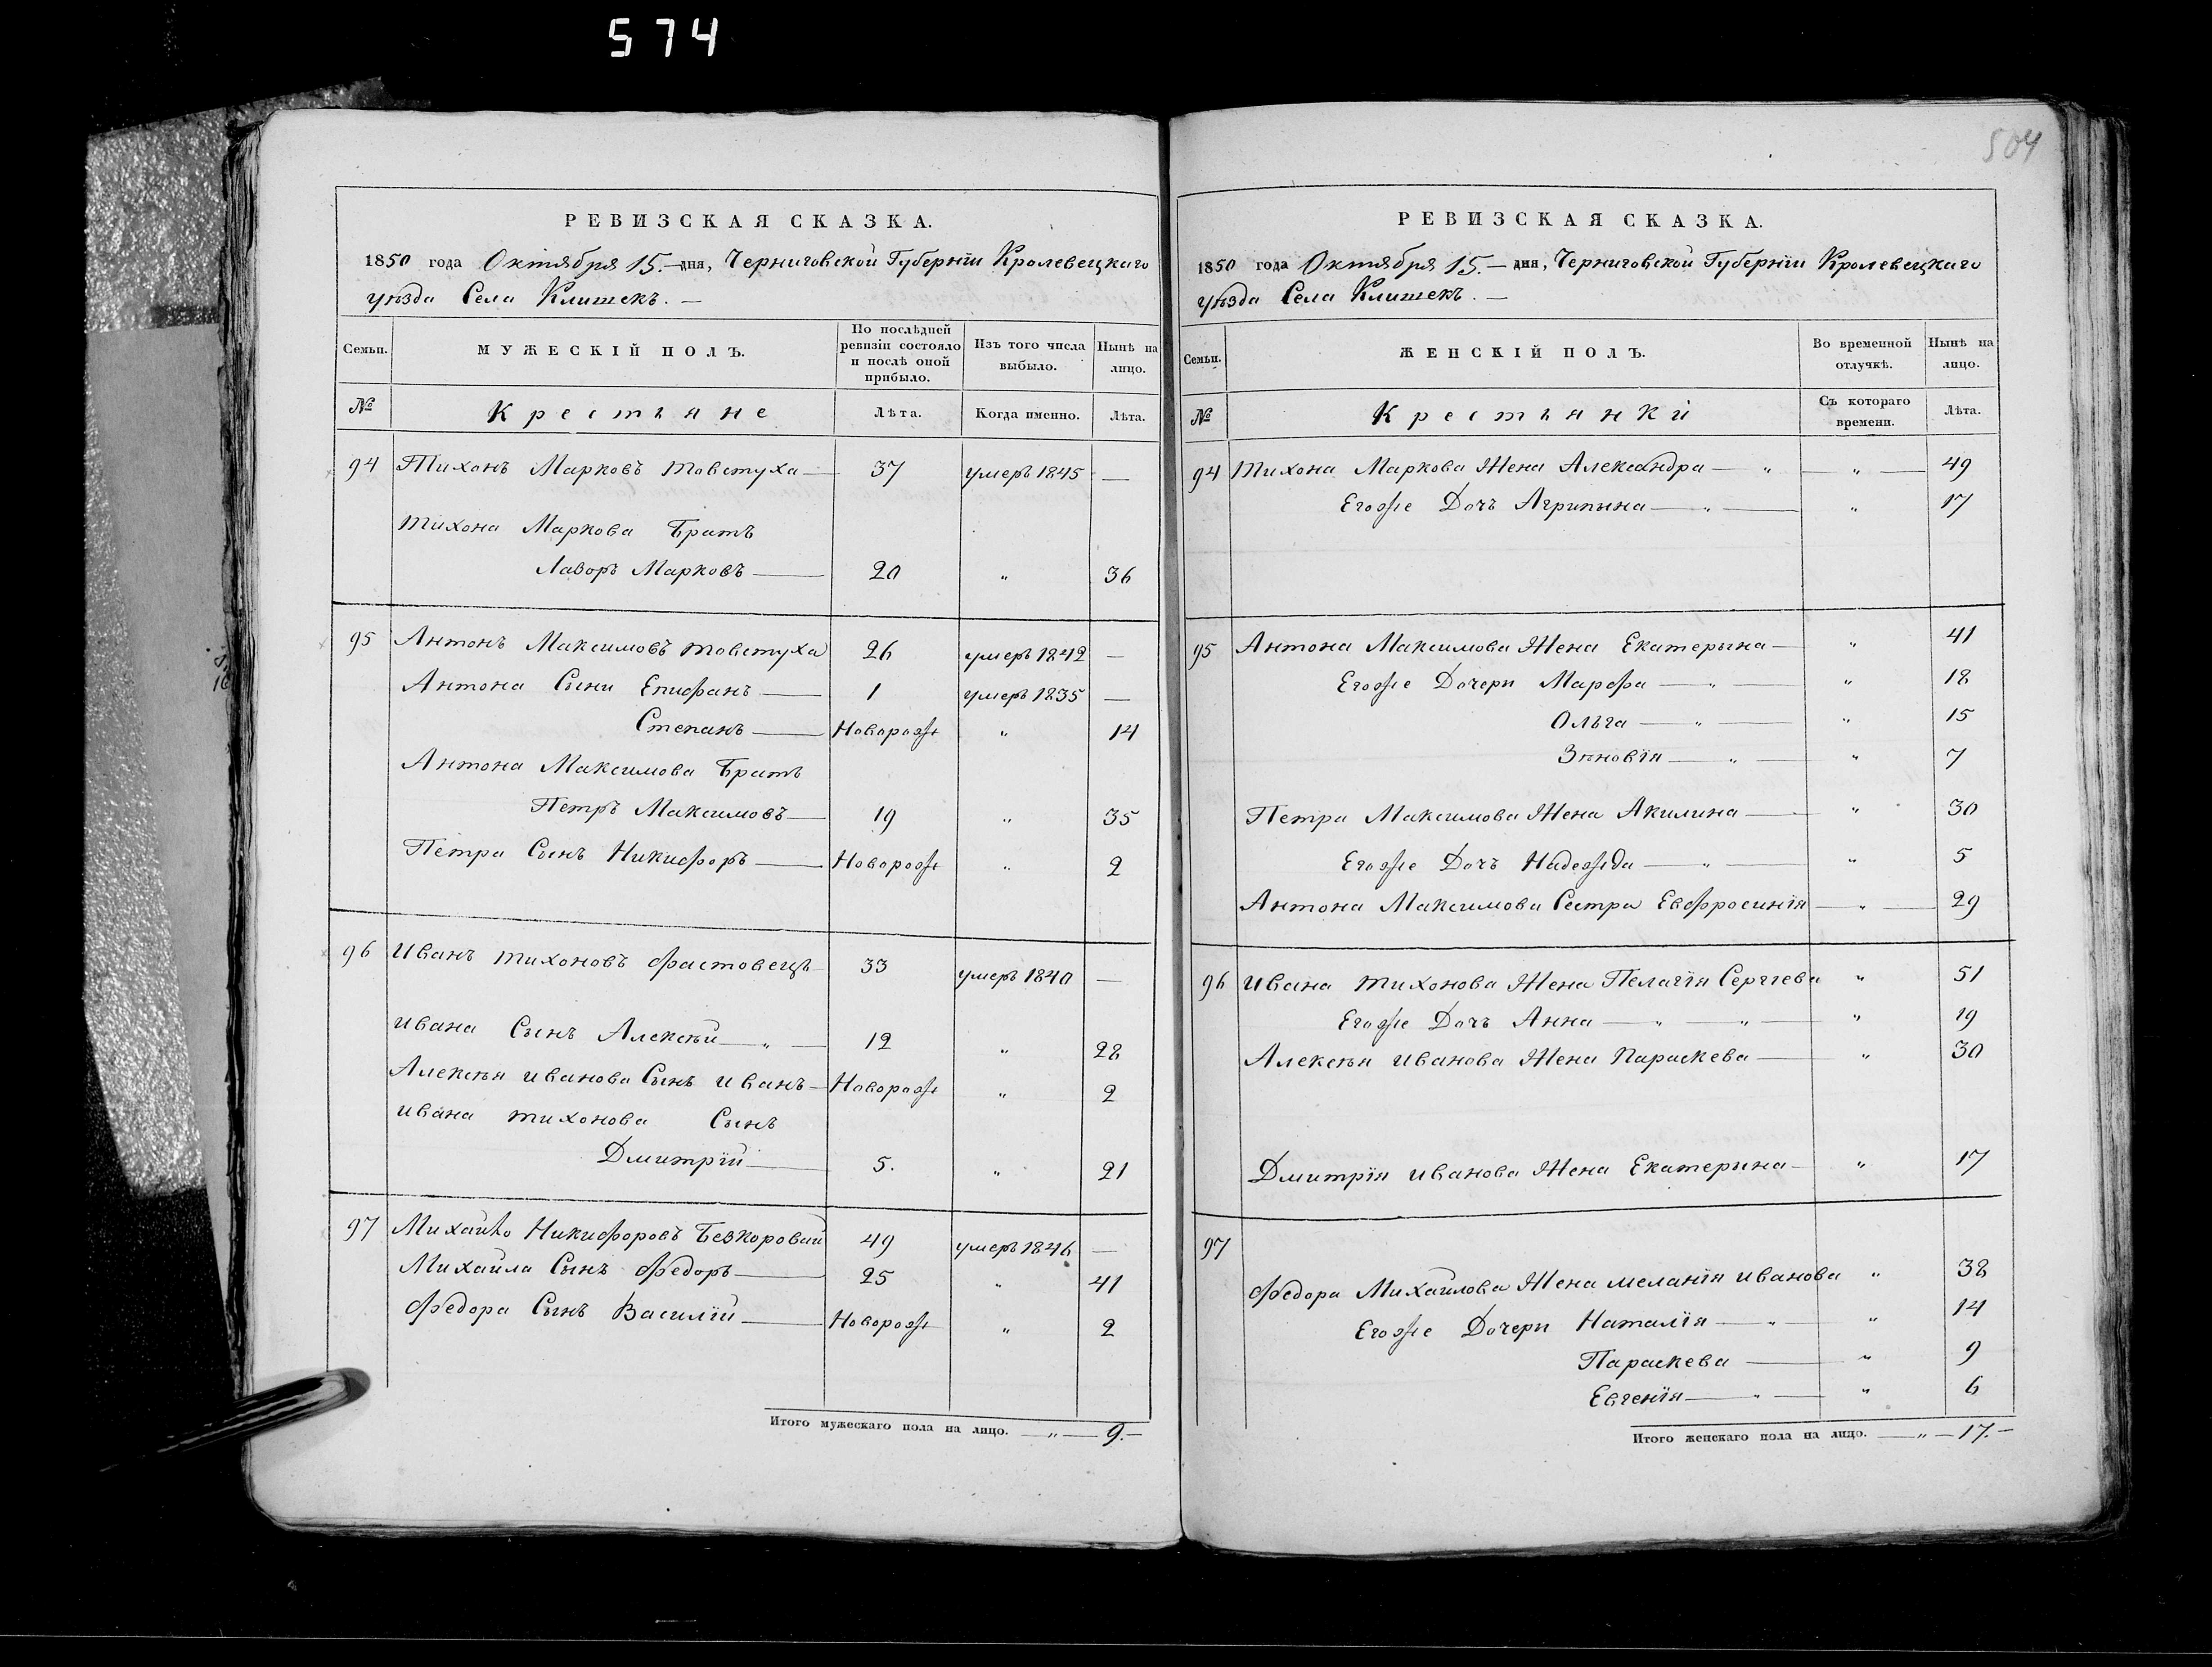 574
504
РЕВИЗСКАЯ СКАЗКА.
1850 года Октября 15.— дня, Черниговской Губернїи Кролевецкаго
уѣзда Села Клишекъ. —
Семьи. МУЖЕСКІЙ ПОЛЪ. По послѣдней ревизіи состояло и послѣ оной прибыло. Изъ того числа выбыло. Нынѣ на лицо.
№ Крестьяне Лѣта. Когда именно. Лѣта.
94 Тихонъ Марковъ Товстуха — 37 умеръ 1845 —
Тихона Маркова Братъ
Лаворъ Марковъ — 20 „ 36
95 Антонъ Максимовъ Товстуха 26 умеръ 1842 —
Антона Сыни Епифанъ — 1 умеръ 1835 —
Степанъ — Новорож „ 14
Антона Максимова Братъ
Петръ Максимовъ — 19 „ 35
Петра Сынъ Никифоръ — Новорож „ 2
96 Иванъ Тихоновъ Фастовецъ 33 умеръ 1840 —
Ивана Сынъ Алексѣй — „ — 12 „ 28
Алексѣя Иванова Сынъ Иванъ — Новорож „ 2
Ивана Тихонова Сынъ
Дмитрїй — 5. „ 21
97 Михайло Никифоровъ Безкоровай 49 умеръ 1846 —
Михайла Сынъ Федоръ — 25 „ 41
Федора Сынъ Василїй — Новорож „ 2
Итого мужескаго пола на лицо. — „ — 9. —
РЕВИЗСКАЯ СКАЗКА.
1850 года Октября 15. — дня, Черниговской Губернїи Кролевецкаго
уѣзда Села Клишекъ. —
Семьи. ЖЕНСКІЙ ПОЛЪ. Во временной отлучкѣ. Нынѣ на лицо.
№ Крестьянки Съ котораго времени. Лѣта.
94 Тихона Маркова Жена Александра — „ — „ — 49
Егоже Дочъ Агрипына — „ — „ 17
95 Антона Максимова Жена Екатерына — „ 41
Егоже Дочери Марфа — „ — „ 18
Ольга — „ — „ 15
Зѣновїя — „ — „ 7
Петра Максимова Жена Акилина — „ 30
Егоже Дочъ Надежда — „ — „ 5
Антона Максимова Сестра Евфросинїя — „ — 29
96 Ивана Тихонова Жена Пелагїя Сергїева „ 51
Егоже Дочъ Анна — „ — „ — „ 19
Алексѣя Иванова Жена Параскева — „ 30
Дмитрїя Иванова Жена Екатерина — „ 17
97
Федора Михайлова Жена Меланїя Иванова „ 38
Егоже Дочери Наталїя — „ — „ 14
Параскева — „ 9
Евгенїя — „ — „ 6
Итого женскаго пола на лицо. — „ — 17. —